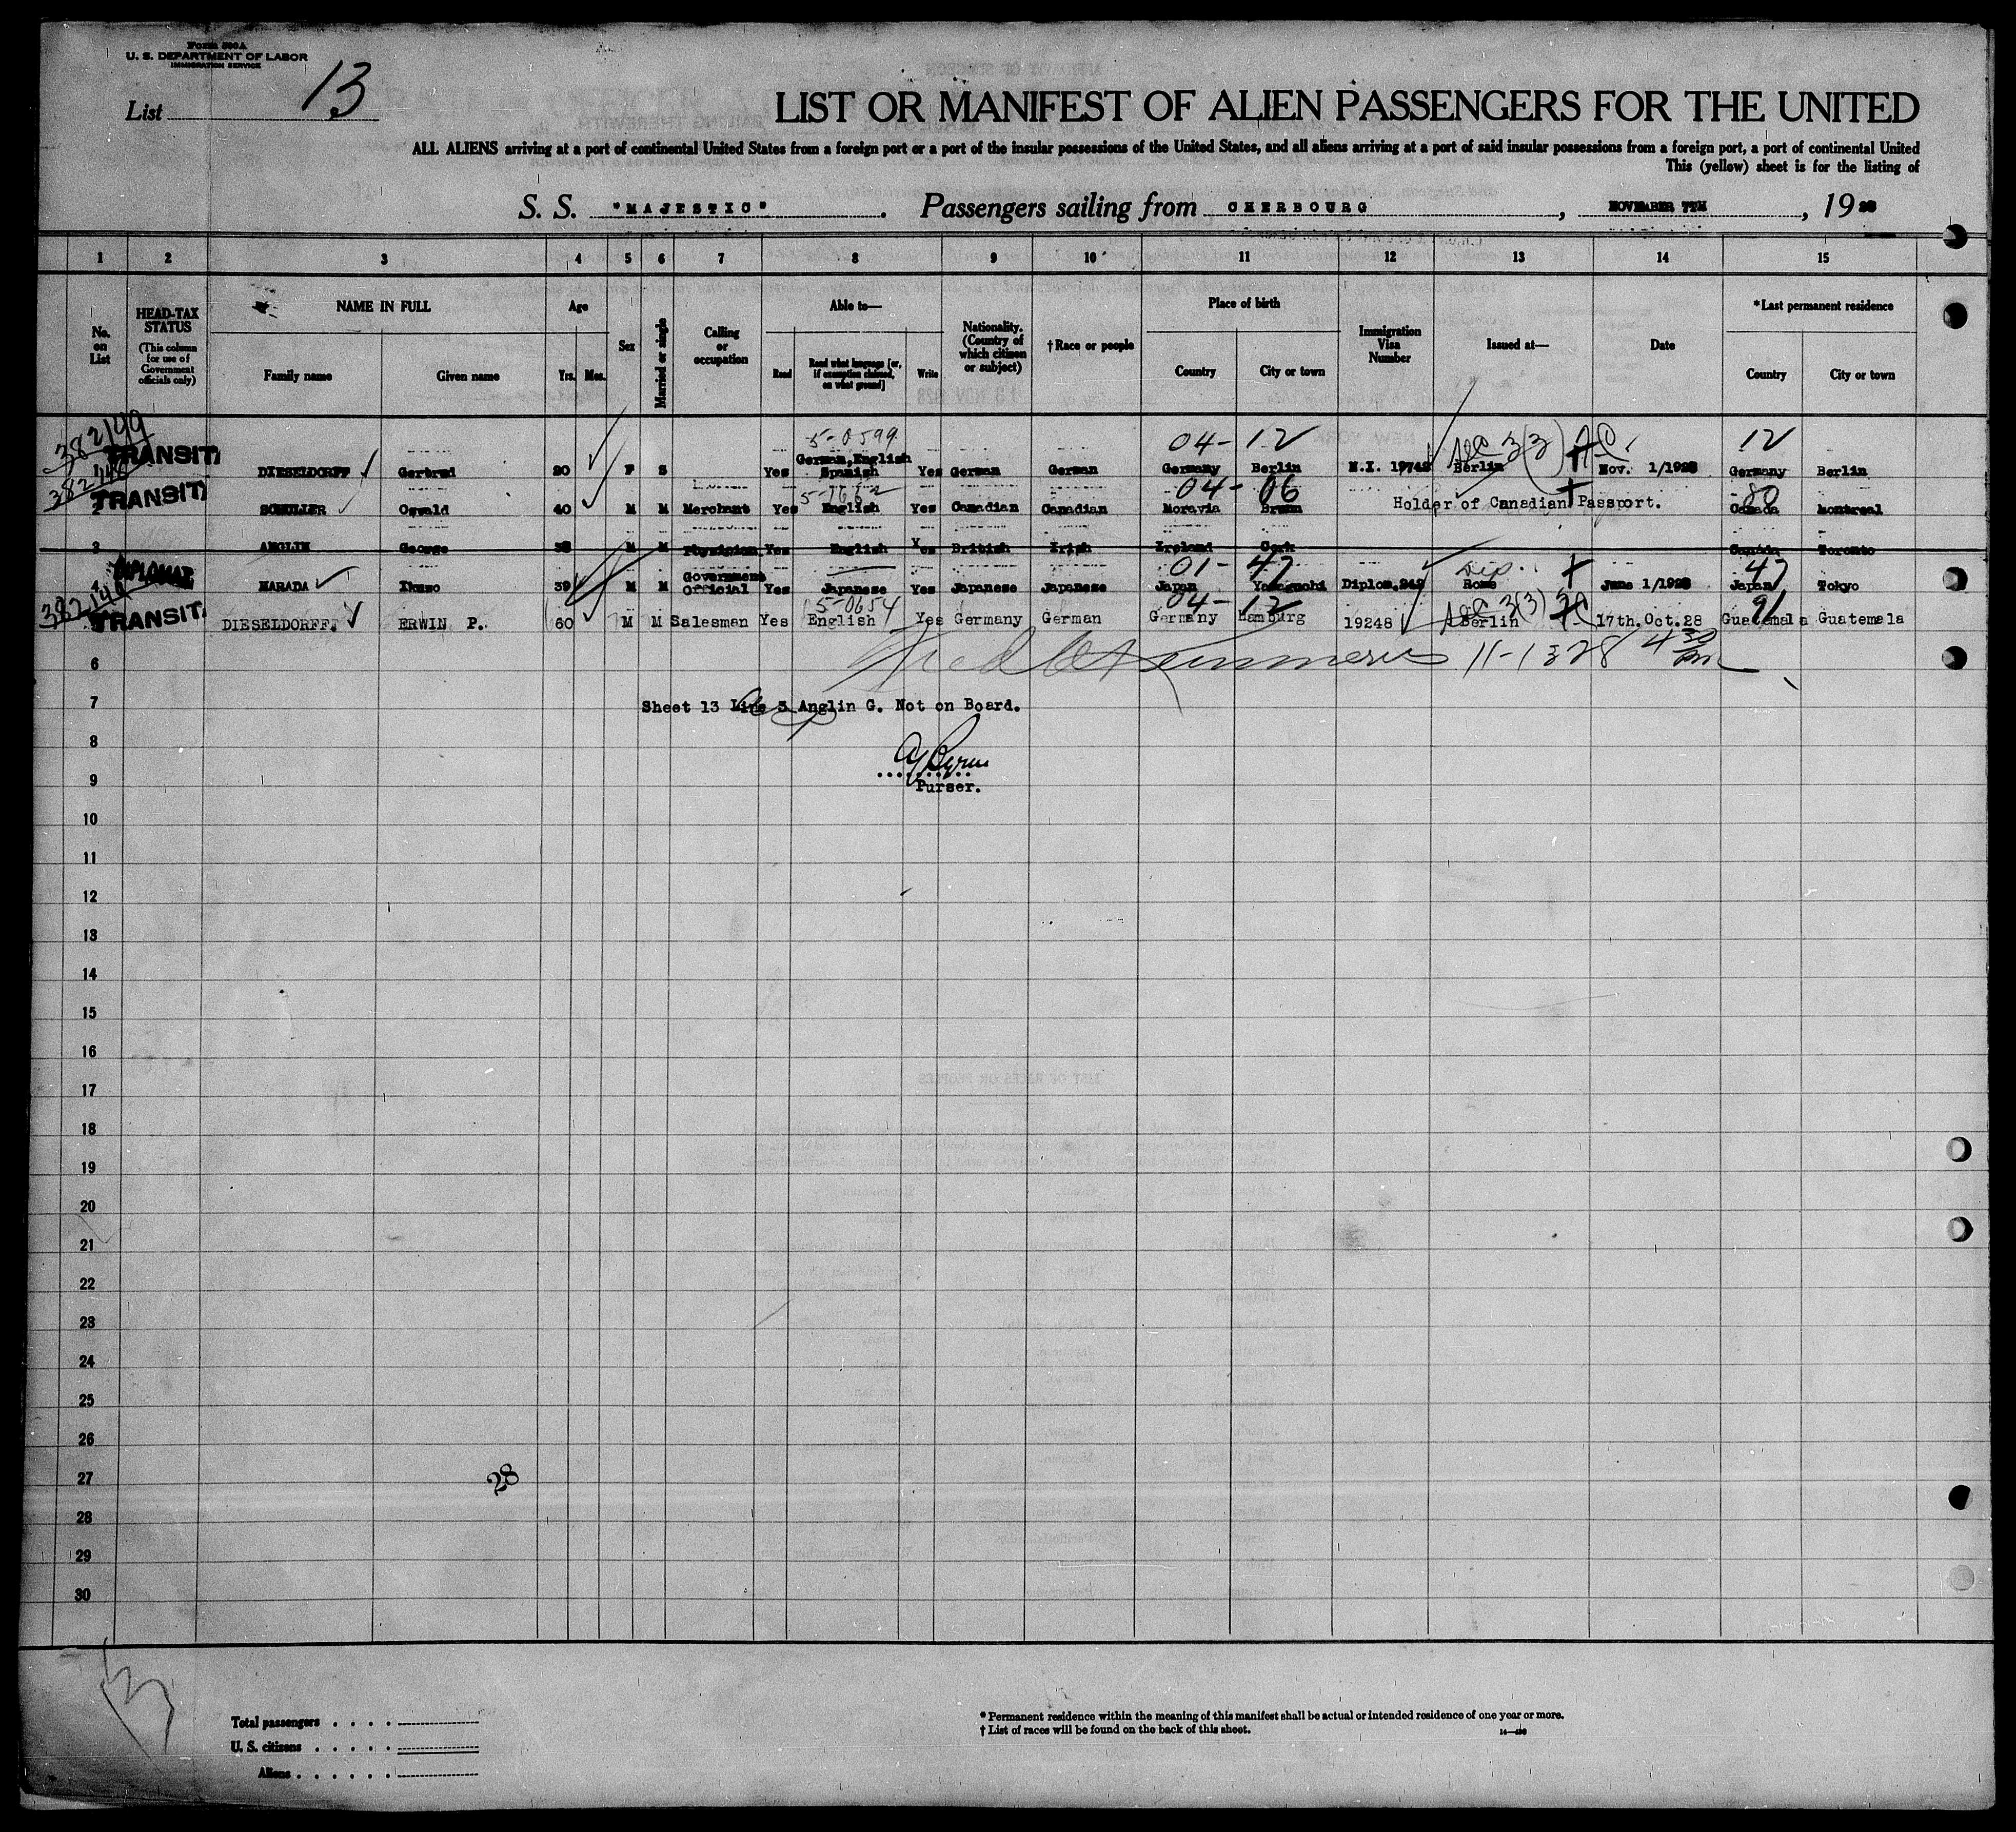 Form 500A
U. S. DEPARTMENT OF LABOR
IMMIGRATION SERVICE
List 13
LIST OR MANIFEST OF ALIEN PASSENGERS FOR THE UNITED
ALL ALIENS arriving at a port of continental United States from a foreign port or a port of the insular possessions of the United States, and all aliens arriving at a port of said insular possessions from a foreign port, a port of continental United
This (yellow) sheet is for the listing of
S. S. "MAJESTIC". Passengers sailing from CHERBOURG, NOVEMBER 7TH, 1928
1 2 3 4 5 6 7 8 9 10 11 12 13 14 15
No. on List
HEAD-TAX STATUS (This column for use of Government officials only)
NAME IN FULL
Family name
Given name
Age
Yrs. Mos.
Sex
Married or single
Calling or occupation
Able to—
Read
Read what language [or, if exemption claimed, on what ground]
Write
Nationality. (Country of which citizen or subject)
†Race or people
Place of birth
Country
City or town
Immigration Visa Number
Issued at—
Date
*Last permanent residence
Country
City or town
382/199
5-0599 04-12 Sec 3(3) 12
TRANSIT DIESELDORFF Gertrud 20 F S Yes German, English Spanish Yes German German Germany Berlin N.I. 19742 Berlin Nov. 1/1928 Germany Berlin
382/146
04-06 80
TRANSIT 2 SCHULLER Oswald 40 M M Merchant Yes English Yes Canadian Canadian Moravia Brunn Holder of Canadian Passport. Canada Montreal
3 ANGLIN George 38 M M Physician Yes English Yes British Irish Ireland Cork Canada Toronto
01-47 Dip. 47
DIPLOMAT 4 HARADA Ikuzo 39 M M Government Official Yes Japanese Yes Japanese Japanese Japan Yamaguchi Diplom.242 Rome June 1/1928 Japan Tokyo
382/146
5-0654 04-12 Sec 3(3) 91
TRANSIT DIESELDORFF. ERWIN P. 60 M M Salesman Yes English Yes Germany German Germany Hamburg 19248 Berlin 17th.Oct.28 Guatemala Guatemala
6
11-13 28 4 30 PM
7 Sheet 13 Line 3 Anglin G. Not on Board.
8
9 Purser.
10
11
12
13
14
15
16
17
18
19
20
21
22
23
24
25
26
27 28
28
29
30
13
Total passengers
U. S. citizens
Aliens
* Permanent residence within the meaning of this manifest shall be actual or intended residence of one year or more.
† List of races will be found on the back of this sheet.